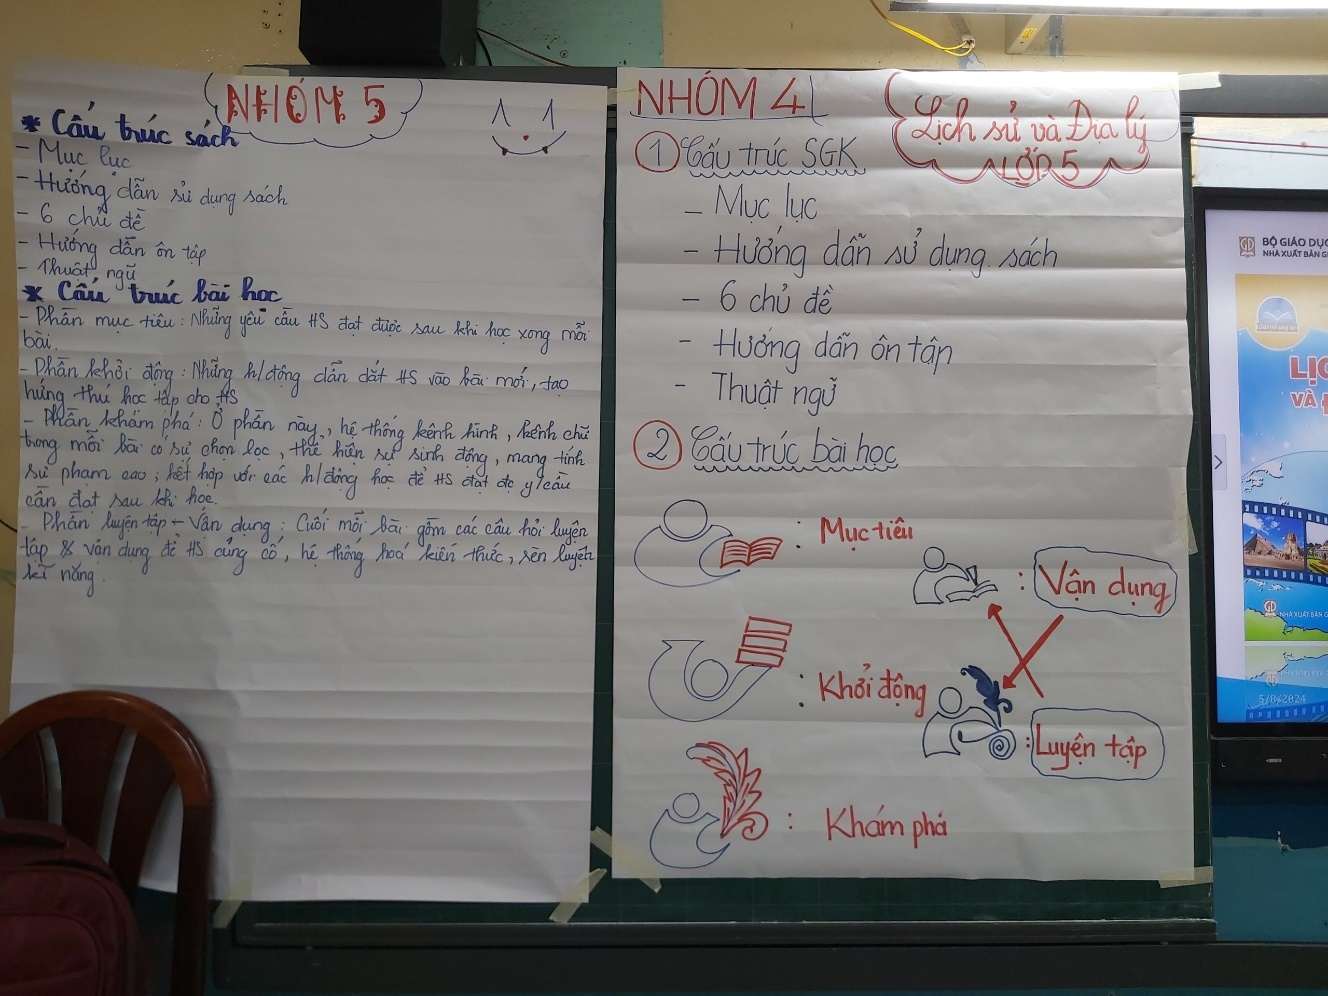 NHÓM 5
* Cấu trúc sách
- Mục lục
- Hướng dẫn sử dụng sách
- 6 chủ đề
- Hướng dẫn ôn tập
- Thuật ngữ
* Cấu trúc bài học
- Phần mục tiêu: Những yêu cầu HS đạt được sau khi học xong mỗi
bài.
- Phần khởi động: Những h/động dẫn dắt HS vào bài mới, tạo
hứng thú học tập cho HS
- Phần khám phá: Ở phần này, hệ thống kênh hình, kênh chữ
trong mỗi bài có sự chọn lọc, thể hiện sự sinh động, mang tính
sư phạm cao, kết hợp với các h/động học để HS đạt đc y/cầu
cần đạt sau khi học.
- Phần luyện tập - Vận dụng: Cuối mỗi bài gồm các câu hỏi luyện
tập & vận dụng để HS củng cố, hệ thống hoá kiến thức, rèn luyện
kĩ năng.
NHÓM 4
Lịch sử và Địa lý
LỚP 5
1 Cấu trúc SGK
- Mục lục
- Hướng dẫn sử dụng sách
- 6 chủ đề
- Hướng dẫn ôn tập
- Thuật ngữ
2 Cấu trúc bài học
: Mục tiêu
: Vận dụng
: Khởi động
: Luyện tập
: Khám phá
BỘ GIÁO DỤC
NHÀ XUẤT BẢN GI
LỊC
VÀ Đ
NHÀ XUẤT BẢN G
5/8/2024